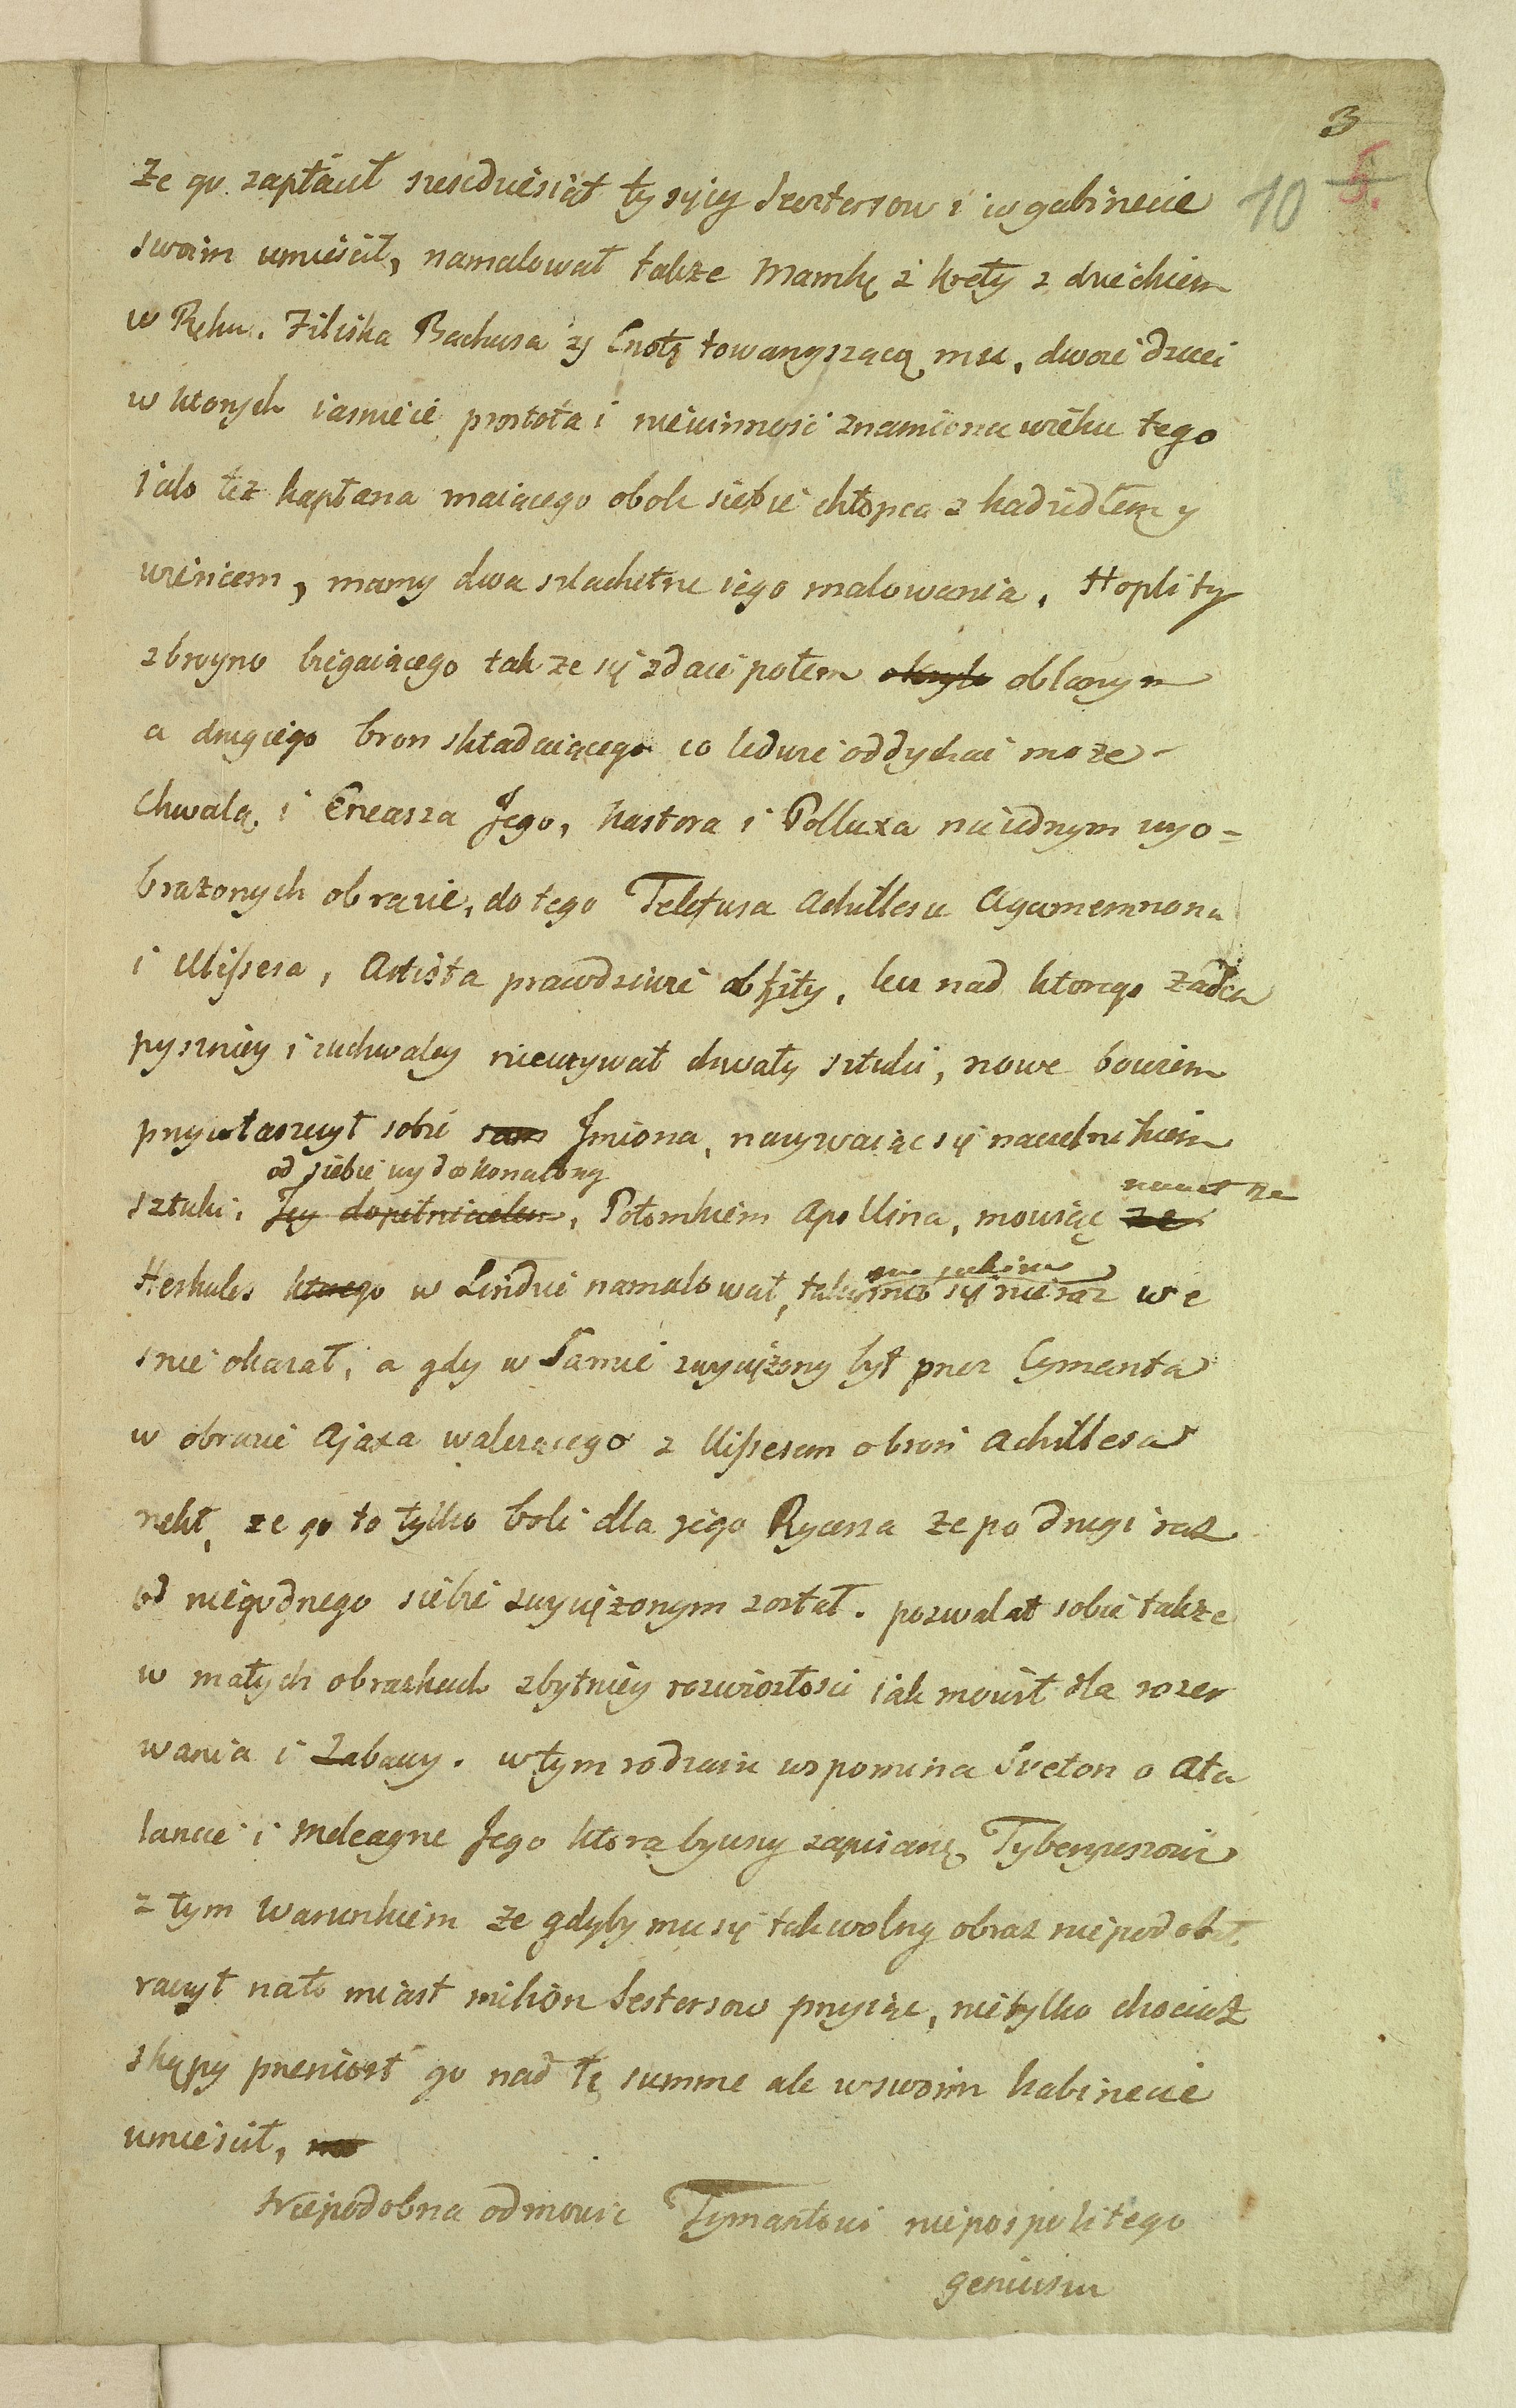 3
5.
10
że go zapłacił sześcdziesiąt tysięcy Sestersow i w gabinecie
swoim umieścił, namalował także Mamkę z Krety z dzieckiem
w Ręku. Filiska Bachusa y Cnotę towarzyszącą mu, dwoie dzieci
w ktorych iaśnieie prostota i niewinność znamiona wieku tego
iako też kapłana maiącego obok siebie chłopca z kadzidłem y
wieńcem, mamy dwa szlachetne iego malowania, Hoplity
zbroyno biegaiącego tak że się zdaie potem okryło oblanym
a drugiego broń składaiącego co ledwie oddychać może
Chwalą i Eneasza Jego, Kastora i Polluxa na iednym wyo=
brażonych obrazie, do tego Telefusa Achillesa Agamemnona
i Ulissesa, Artista prawdziwie obfity, lecz nad ktorego żaden
pyszniey i zuchwaley nieużywał chwały sztuki, nowe bowiem
przywłaszczył sobie sam Imiona, nazywaiąc się naczelnikiem
od siebie wydoskonaloney
sztuki, Jey dopełnicielem, Potomkiem Apollina, mowiąc że
nawet że
Herkules ktorego w Lindzie namalował, takim mu się nie raz we
jakim
śnie okazał, a gdy w Samie zwyciężony był przez Cymanta
w obrazie Ajaxa walczącego z Ulissesem o broń Achillesa
rzekł, że go to tylko boli dla jego Rycerza że po drugi raz
od niegodnego siebie zwyciężonym został. pozwalał sobie także
w małych obrazkach zbytniey rozwiozłości iak mowił dla rozer
wania i Zabawy. w tym rodzaiu wspomina Sveton o Ata
lancie i Meleagrze Jego ktora bywszy zapisaną Tyberyuszowi
z tym Warunkiem że gdyby mu się tak wolny obraz niepodobał
raczył nato miast milion Sestersow przyiąć, nietylko chociaż
skąpy przeniosł go nad tę summę ale w swoim kabinecie
umieścił,
Niepodobna odmowić Tymantowi niepospolitego
geniuszu